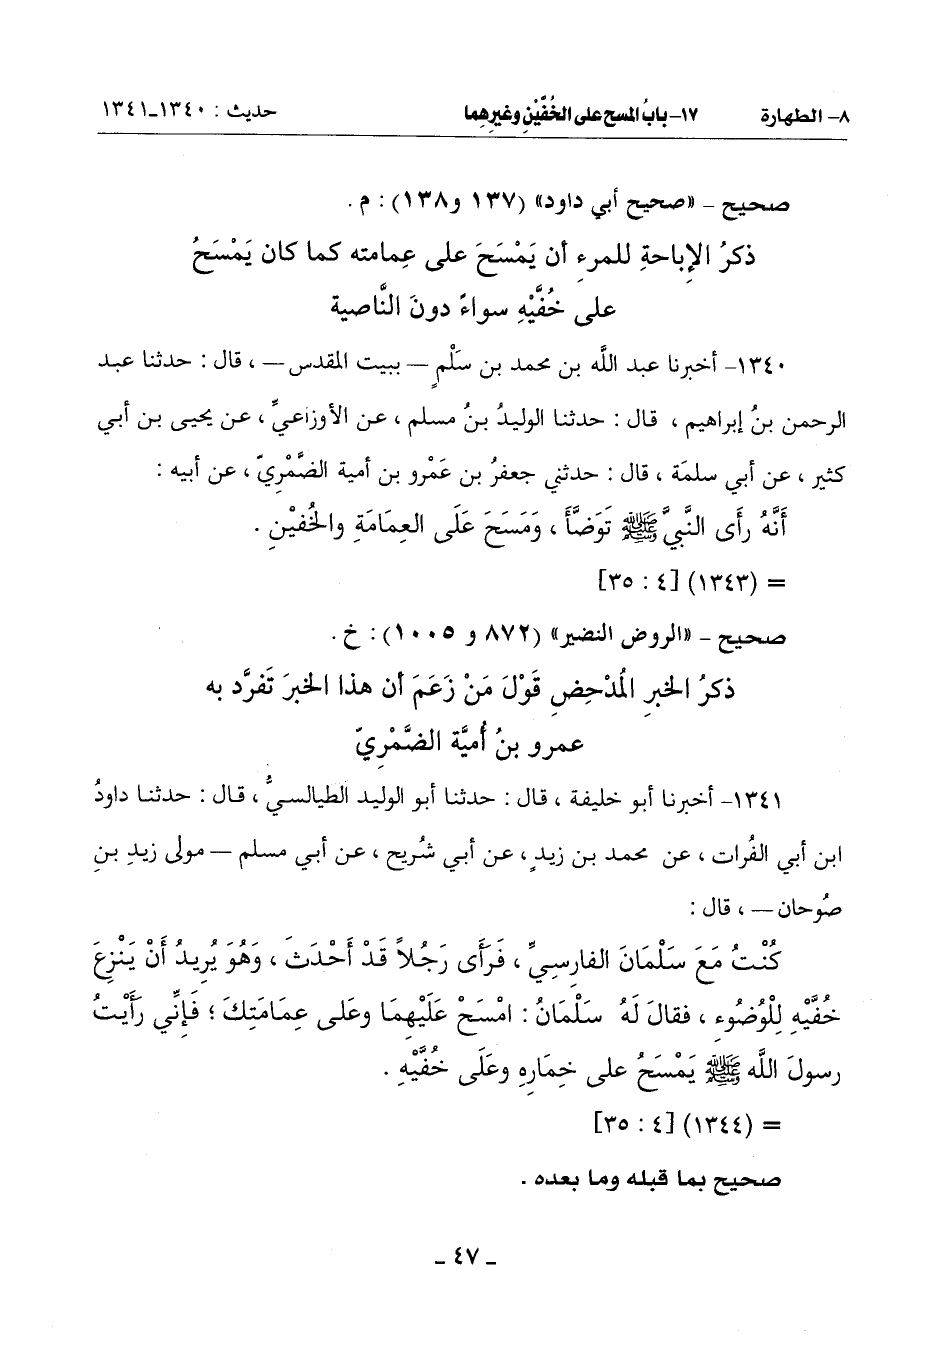 ٨- الطهارة ١٧- بابُ المسح على الخُفَّيْنِ وغيرِهِما حديث : ١٣٤٠-١٣٤١
صحيح - «صحيح أبي داود» (١٣٧ و١٣٨) : م .
ذكرُ الإباحةِ للمرءِ أن يَمْسَحَ على عِمامته كما كان يَمْسَحُ
على خُفَّيْهِ سواءً دونَ النَّاصية
١٣٤٠- أخبرنا عبد اللَّه بن محمد بن سَلْمٍ — ببيت المقدس — ، قال : حدثنا عبد
الرحمن بنُ إبراهيم ، قال : حدثنا الوليدُ بنُ مسلم ، عن الأوزاعيِّ ، عن يحيى بن أبي
كثير ، عن أبي سلمَة ، قال : حدثني جعفرُ بن عَمْرو بن أمية الضَّمْريّ ، عن أبيه :
أَنَّهُ رأَى النَّبيَّ ﷺ تَوَضَّأَ ، وَمَسَحَ عَلَى العِمَامَةِ والخُفيْنِ .
= (١٣٤٣) [٤ : ٣٥]
صحيح - «الروض النضير» (٨٧٢ و ١٠٠٥) : خ .
ذكرُ الخبرِ المُدْحِضِ قَوْلَ مَنْ زَعَمَ أن هذا الخبرَ تَفرَّد به
عمرو بنُ أُميَّة الضَّمْرِيّ
١٣٤١- أخبرنا أبو خليفة ، قال : حدثنا أبو الوليد الطيالسيُّ ، قال : حدثنا داودُ
ابن أبي الفُرات ، عن محمد بن زيدٍ ، عن أبي شُريح ، عن أبي مسلم — مولى زيدِ بنِ
صُوحان — ، قال :
كُنْتُ مَعَ سَلْمَانَ الفارِسيِّ ، فَرأَى رَجُلاً قَدْ أَحْدَثَ ، وَهُوَ يُرِيدُ أَنْ يَنْزِعَ
خُفَّيْهِ لِلْوُضُوءِ ، فقالَ لَهُ سَلْمَانُ : امْسَحْ عَلَيْهِمَا وعَلى عِمَامَتِكَ ؛ فَإِنِّي رَأَيْتُ
رسولَ اللَّه ﷺ يَمْسَحُ على خِمارِهِ وعَلَى خُفَّيْهِ .
= (١٣٤٤) [٤ : ٣٥]
صحيح بما قبله وما بعده .
- ٤٧ -